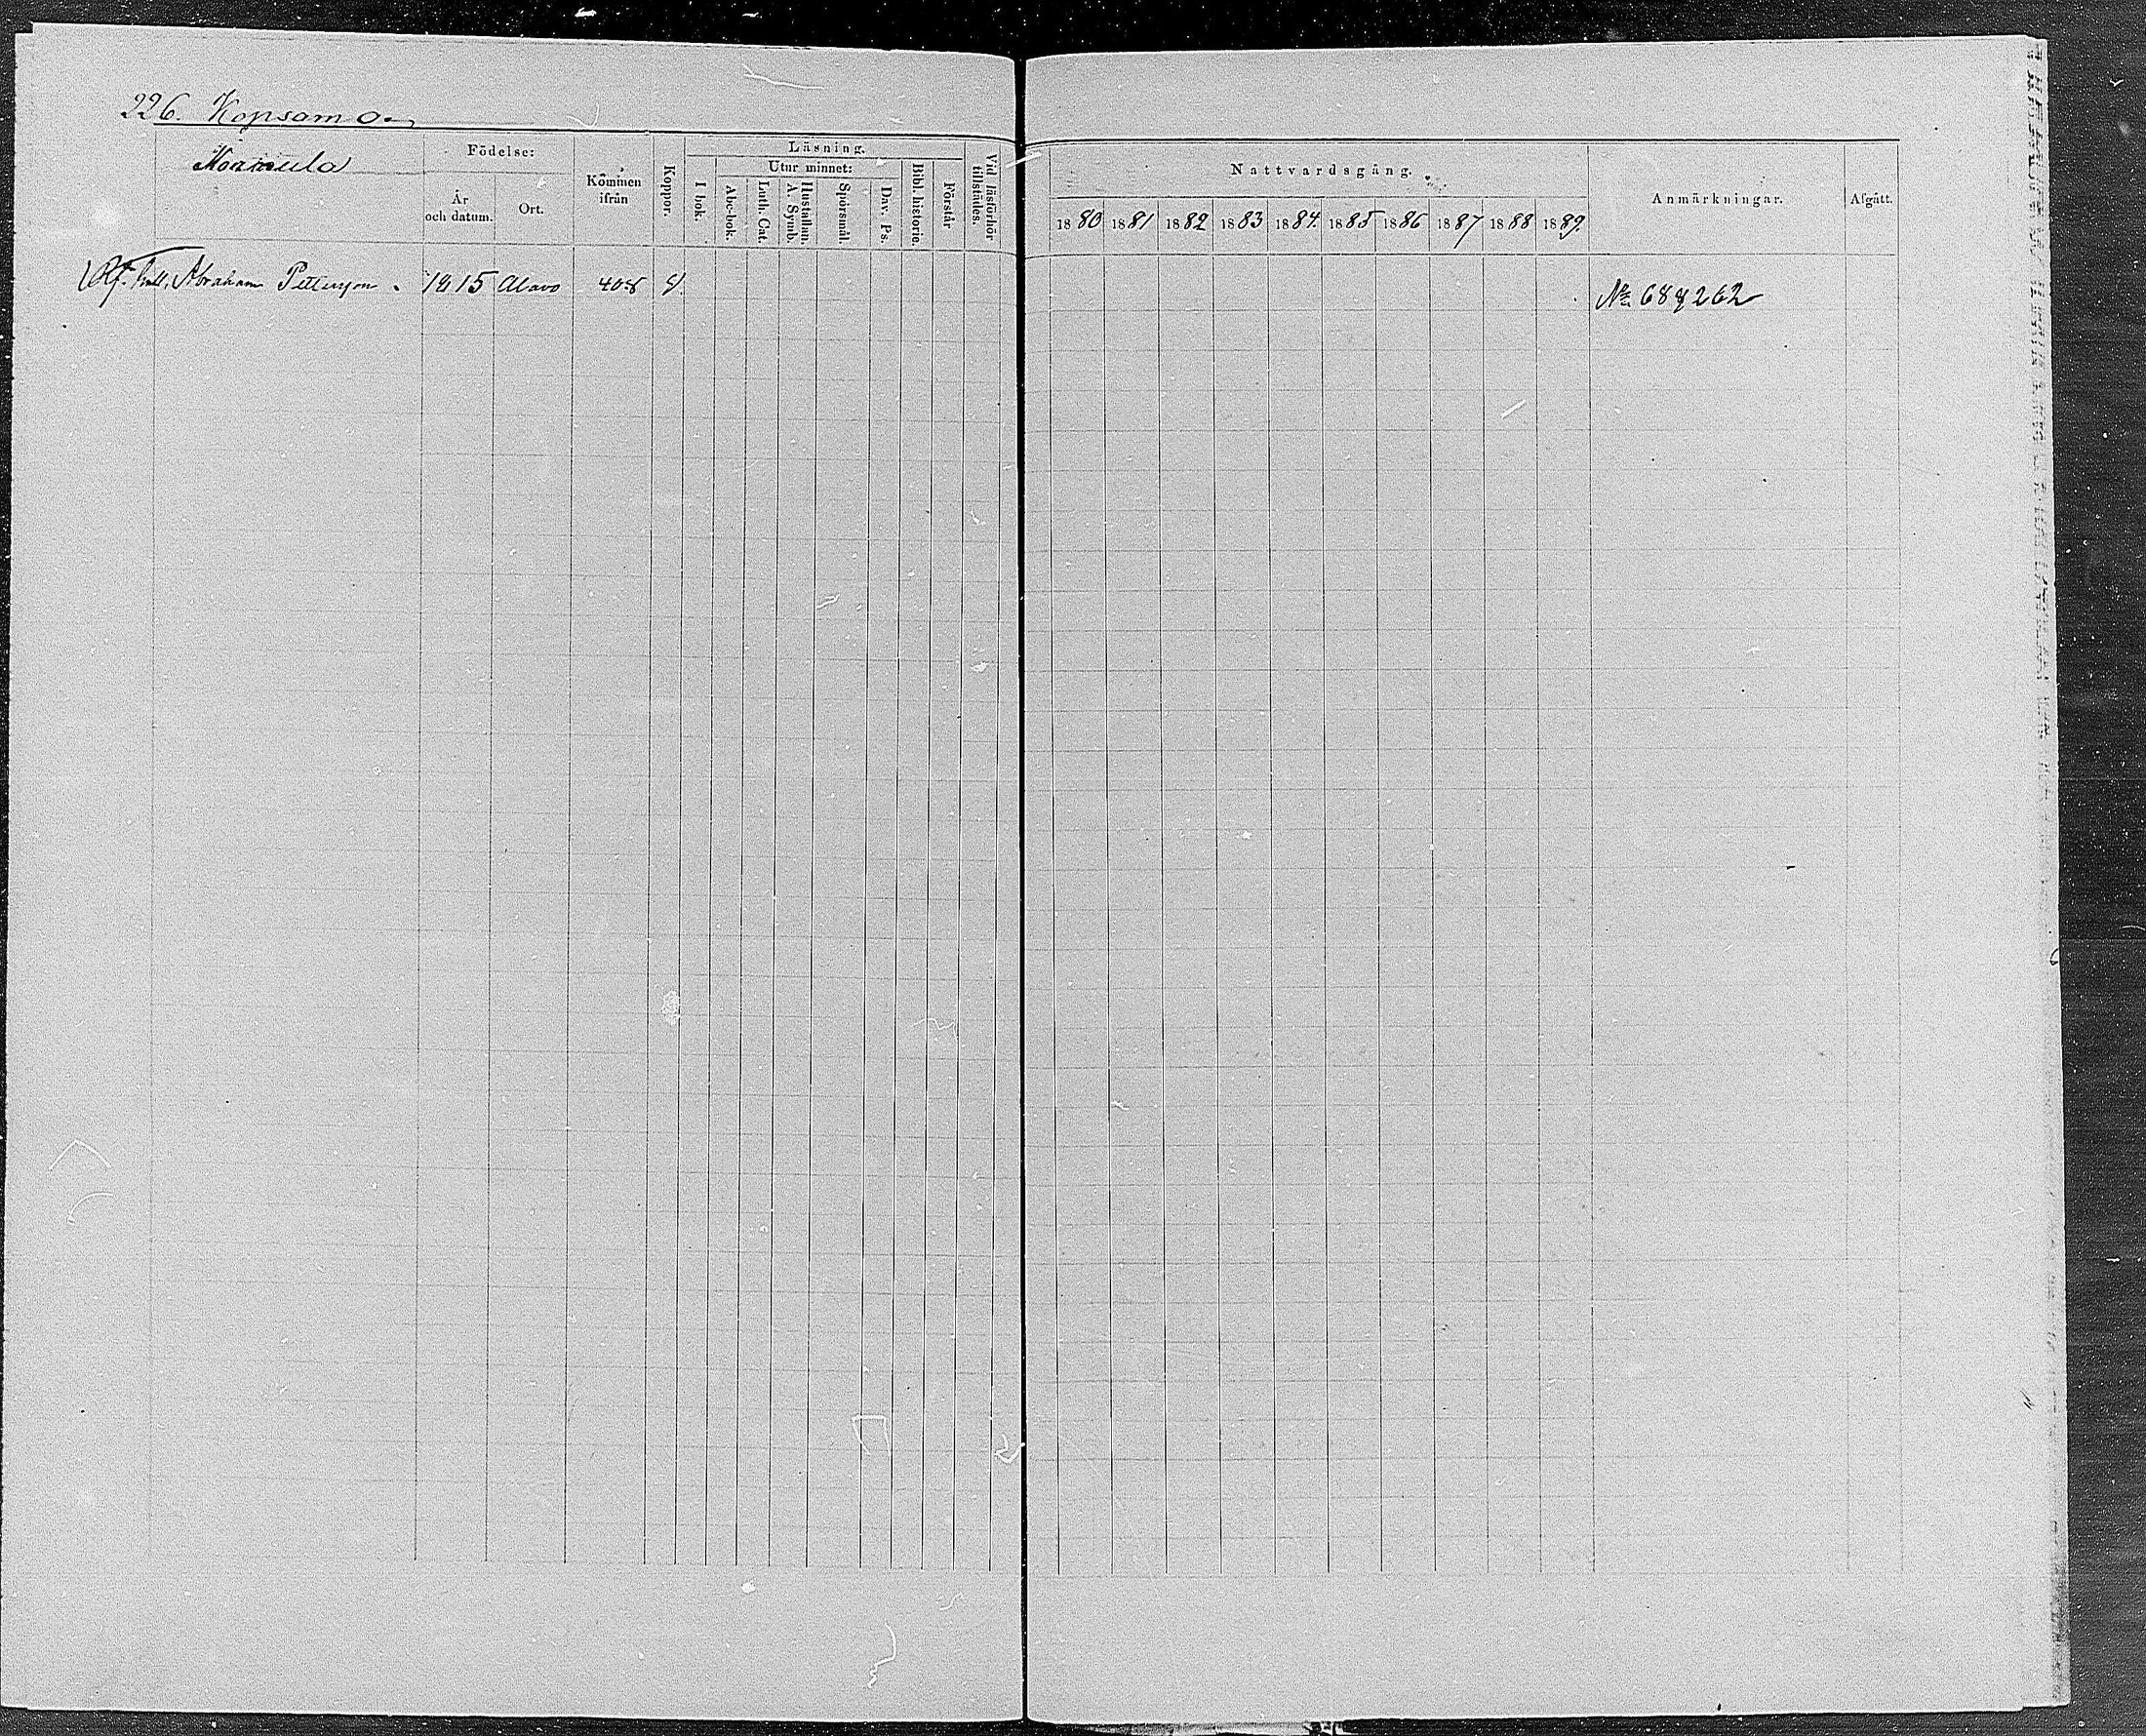 226. Kopsamo
Födelse:
Kommen ifrån
Koppor.
Läsning.
Utur minnet:
I bok.
Abc-bok.
Luth. Cat.
Hustaflan. A Symb.
Spörsmål.
Dav. Ps.
Bibl. historie.
Förstår
Vid läsförhör tillstädes.
År och datum.
Ort.
Nattvardsgång.
Anmärkningar.
Afgått.
1880 1881 1882 1883 1884. 1885 1886 1887 1888 1889.
Abraham Pettersson 1815 Alavo 408
No 68 & 262